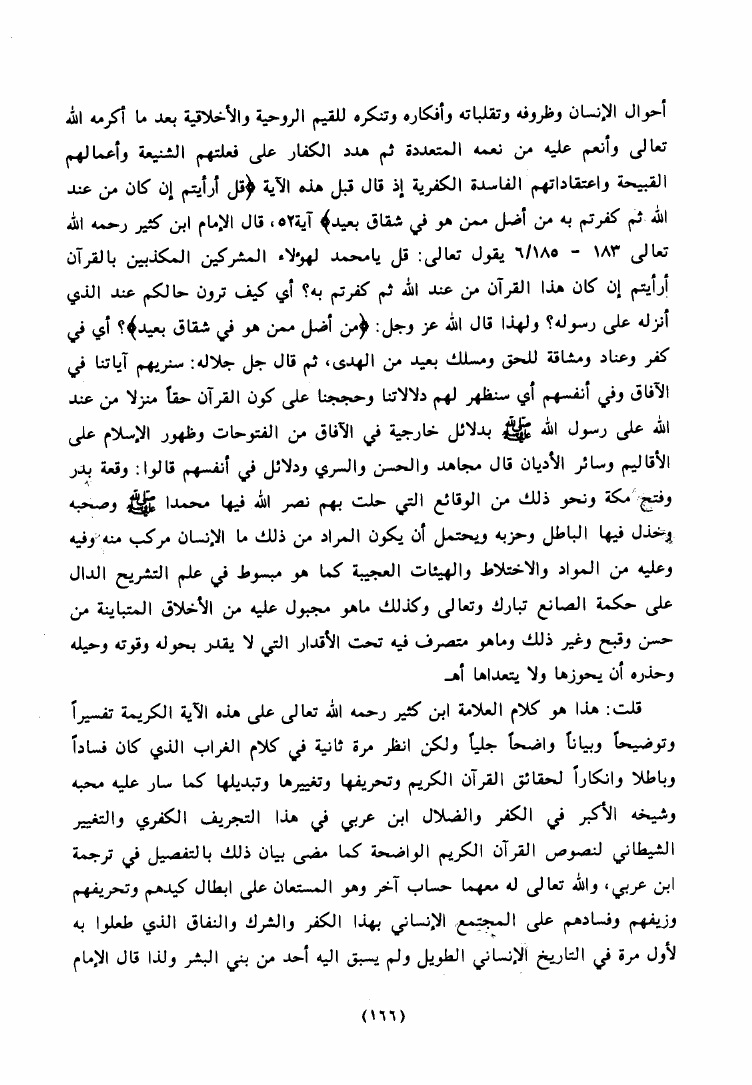 أحوال الإنسان وظروفه وتقلباته وأفكاره وتنكره للقيم الروحية والأخلاقية بعد ما أكرمه الله
تعالى وأنعم عليه من نعمه المتعددة ثم هدد الكفار على فعلتهم الشنيعة وأعمالهم
القبيحة واعتقاداتهم الفاسدة الكفرية إذ قال قبل هذه الآية ﴿قل أرأيتم إن كان من عند
الله ثم كفرتم به من أضل ممن هو في شقاق بعيد﴾ آية٥٢، قال الإمام ابن كثير رحمه الله
تعالى ١٨٣ - ٦/١٨٥ يقول تعالى: قل يامحمد لهؤلاء المشركين المكذبين بالقرآن
أرأيتم إن كان هذا القرآن من عند الله ثم كفرتم به؟ أي كيف ترون حالكم عند الذي
أنزله على رسوله؟ ولهذا قال الله عز وجل: ﴿من أضل ممن هو في شقاق بعيد﴾؟ أي في
كفر وعناد ومشاقة للحق ومسلك بعيد من الهدى، ثم قال جل جلاله: سنريهم آياتنا في
الآفاق وفي أنفسهم أي سنظهر لهم دلالاتنا وحججنا على كون القرآن حقاً منزلا من عند
الله على رسول الله ﷺ بدلائل خارجية في الآفاق من الفتوحات وظهور الإسلام على
الأقاليم وسائر الأديان قال مجاهد والحسن والسري ودلائل في أنفسهم قالوا: وقعة بدر
وفتح مكة ونحو ذلك من الوقائع التي حلت بهم نصر الله فيها محمدا ﷺ وصحبه
وخذل فيها الباطل وحزبه ويحتمل أن يكون المراد من ذلك ما الإنسان مركب منه وفيه
وعليه من المواد والاختلاط والهيئات العجيبة كما هو مبسوط في علم التشريح الدال
على حكمة الصانع تبارك وتعالى وكذلك ماهو مجبول عليه من الأخلاق المتباينة من
حسن وقبح وغير ذلك وماهو متصرف فيه تحت الأقدار التي لا يقدر بحوله وقوته وحيله
وحذره أن يحوزها ولا يتعداها أهـ
قلت: هذا هو كلام العلامة ابن كثير رحمه الله تعالى على هذه الآية الكريمة تفسيراً
وتوضيحاً وبياناً واضحاً جلياً ولكن انظر مرة ثانية في كلام الغراب الذي كان فساداً
وباطلا وانكاراً لحقائق القرآن الكريم وتحريفها وتغييرها وتبديلها كما سار عليه محبه
وشيخه الأكبر في الكفر والضلال ابن عربي في هذا التجريف الكفري والتغيير
الشيطاني لنصوص القرآن الكريم الواضحة كما مضى بيان ذلك بالتفصيل في ترجمة
ابن عربي، والله تعالى له معهما حساب آخر وهو المستعان على ابطال كيدهم وتحريفهم
وزيفهم وفسادهم على المجتمع الإنساني بهذا الكفر والشرك والنفاق الذي طعلوا به
لأول مرة في التاريخ الإنساني الطويل ولم يسبق اليه أحد من بني البشر ولذا قال الإمام
(١٦٦)